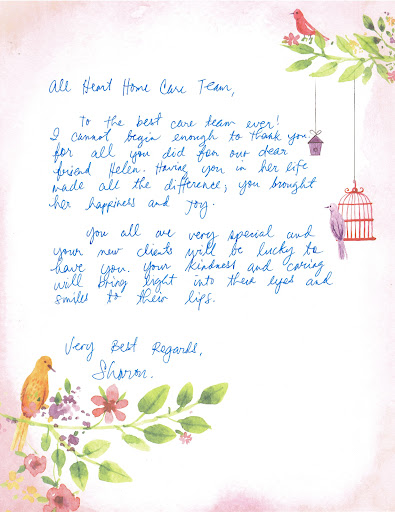 All Heart Home Care Team,
To the best care team ever!
I cannot begin enough to thank you
for all you did for our dear
friend Helen. Having you in her life
made all the difference; you brought
her happiness and joy.
You all are very special and
your new clients will be lucky to
have you. Your kindness and caring
will bring light into their eyes and
smiles to their lips.
Very Best Regards,
Sharon.